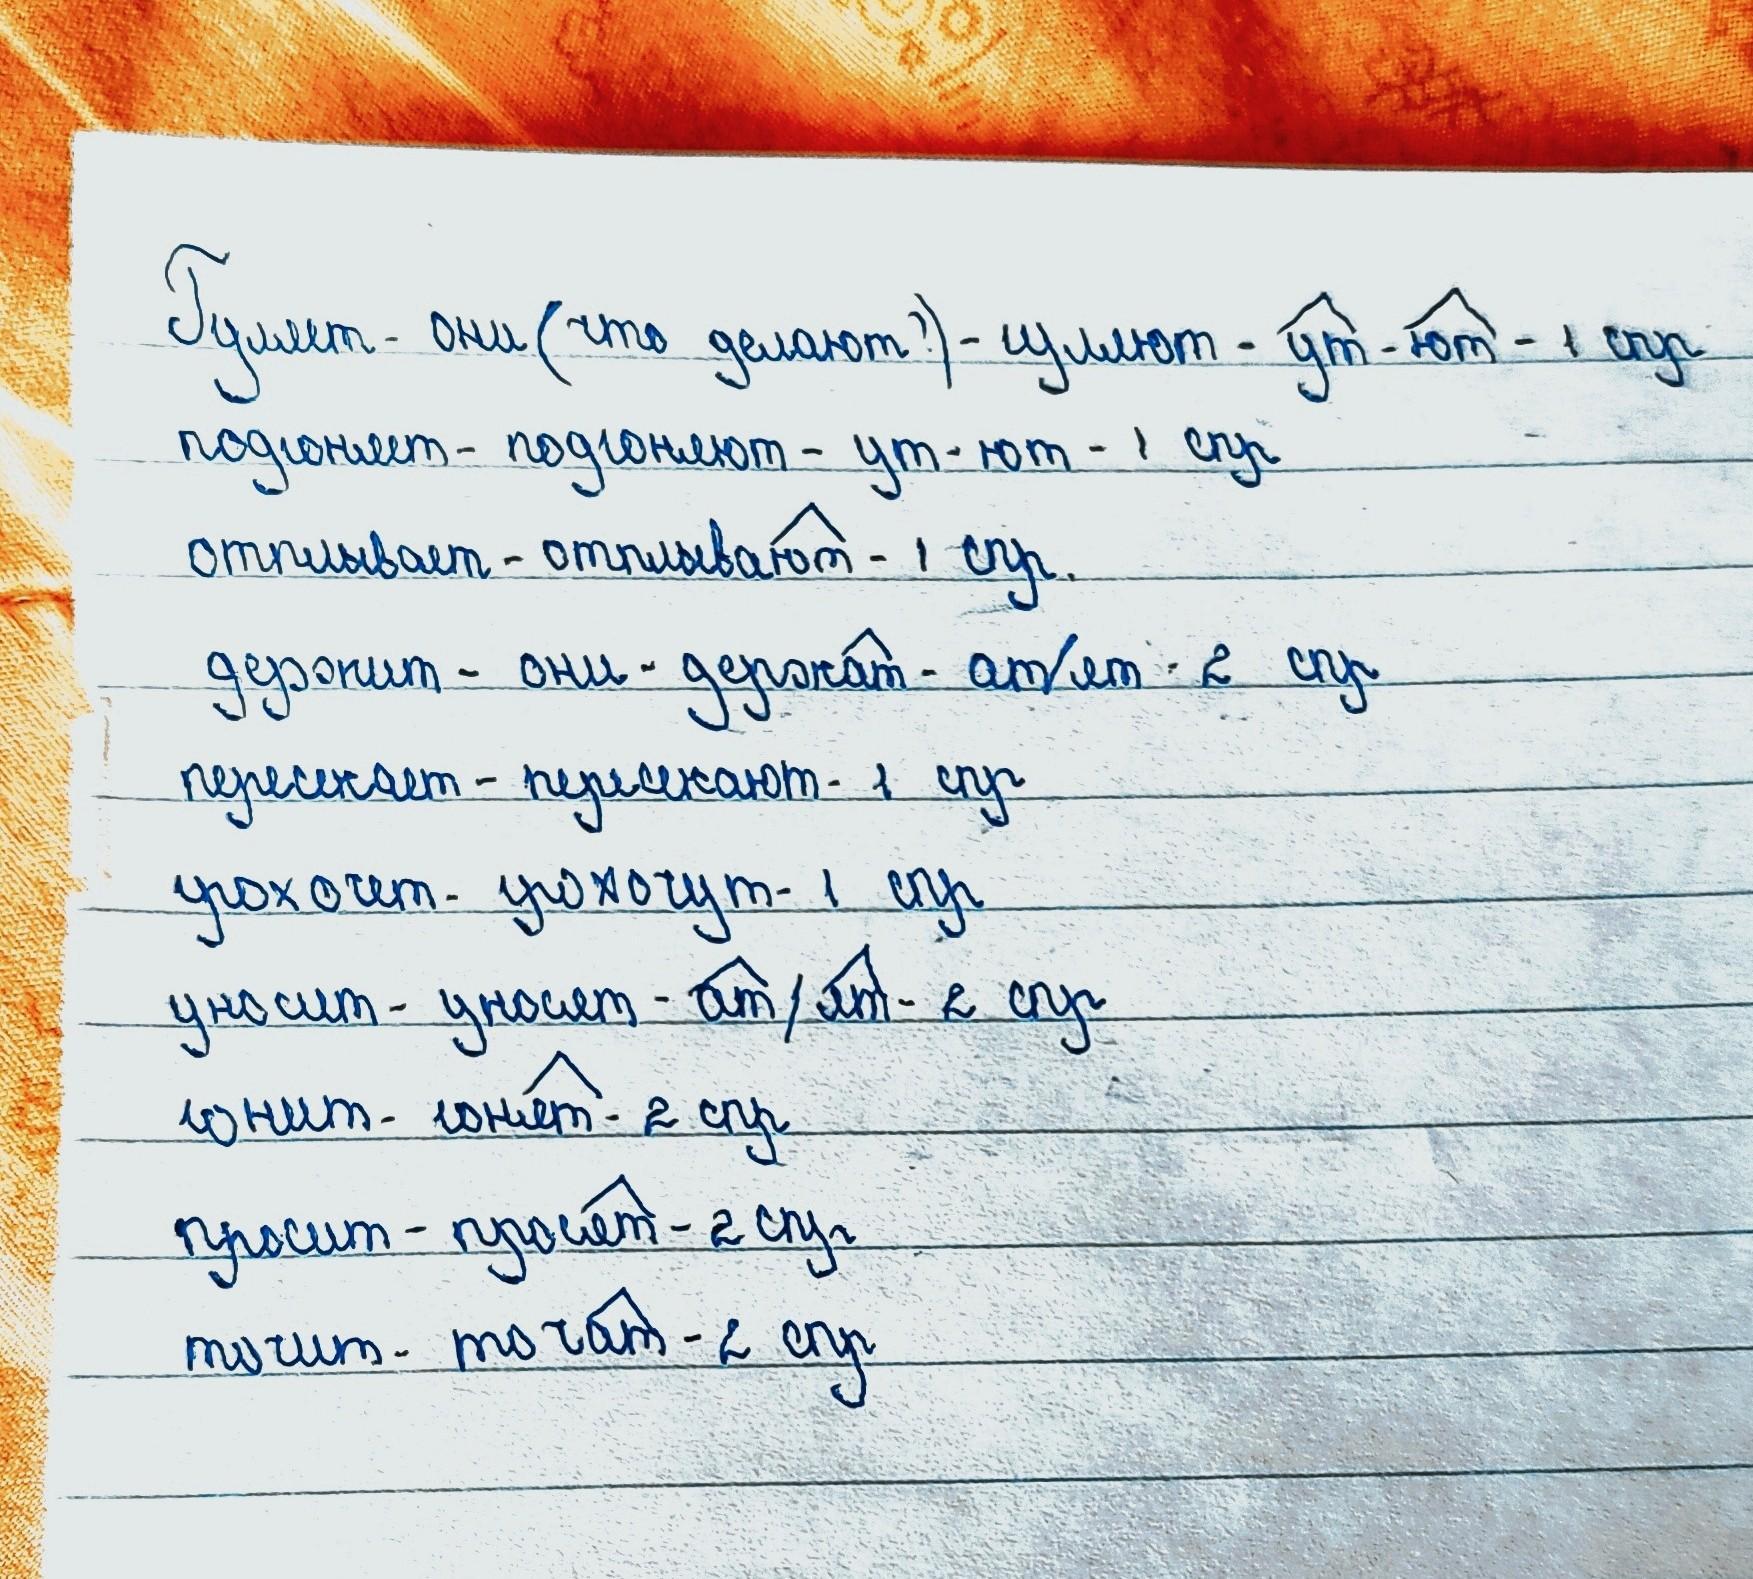 Гуляет - они (что делают?) - гуляют - ут - ют - 1 спр
подгоняет - подгоняют - ут - ют - 1 спр
отплывает - отплывают - 1 спр.
держит - они - держат - ат/ят - 2 спр
пересекает - пересекают - 1 спр
грохочет - грохочут - 1 спр
уносит - уносят - ат/ят - 2 спр
гонит - гонят - 2 спр
просит - просят - 2 спр
точит - точат - 2 спр